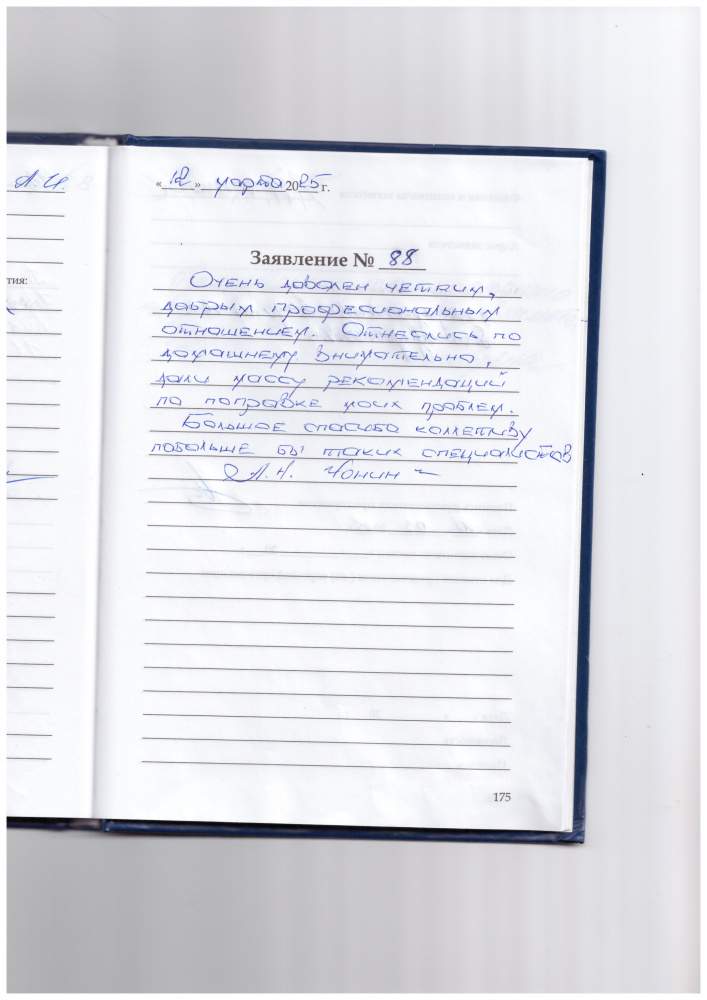 А.И.
тия:
«12» марта 2025 г.
Заявление № 88
Очень доволен четким,
добрым професиональным
отношением. Отнеслись по
домашнему внимательно,
дали массу рекомендаций
по поправке моих проблем.
Большое спасибо коллетиву
побольше бы таких специалистов
А.Н. Чонин
175